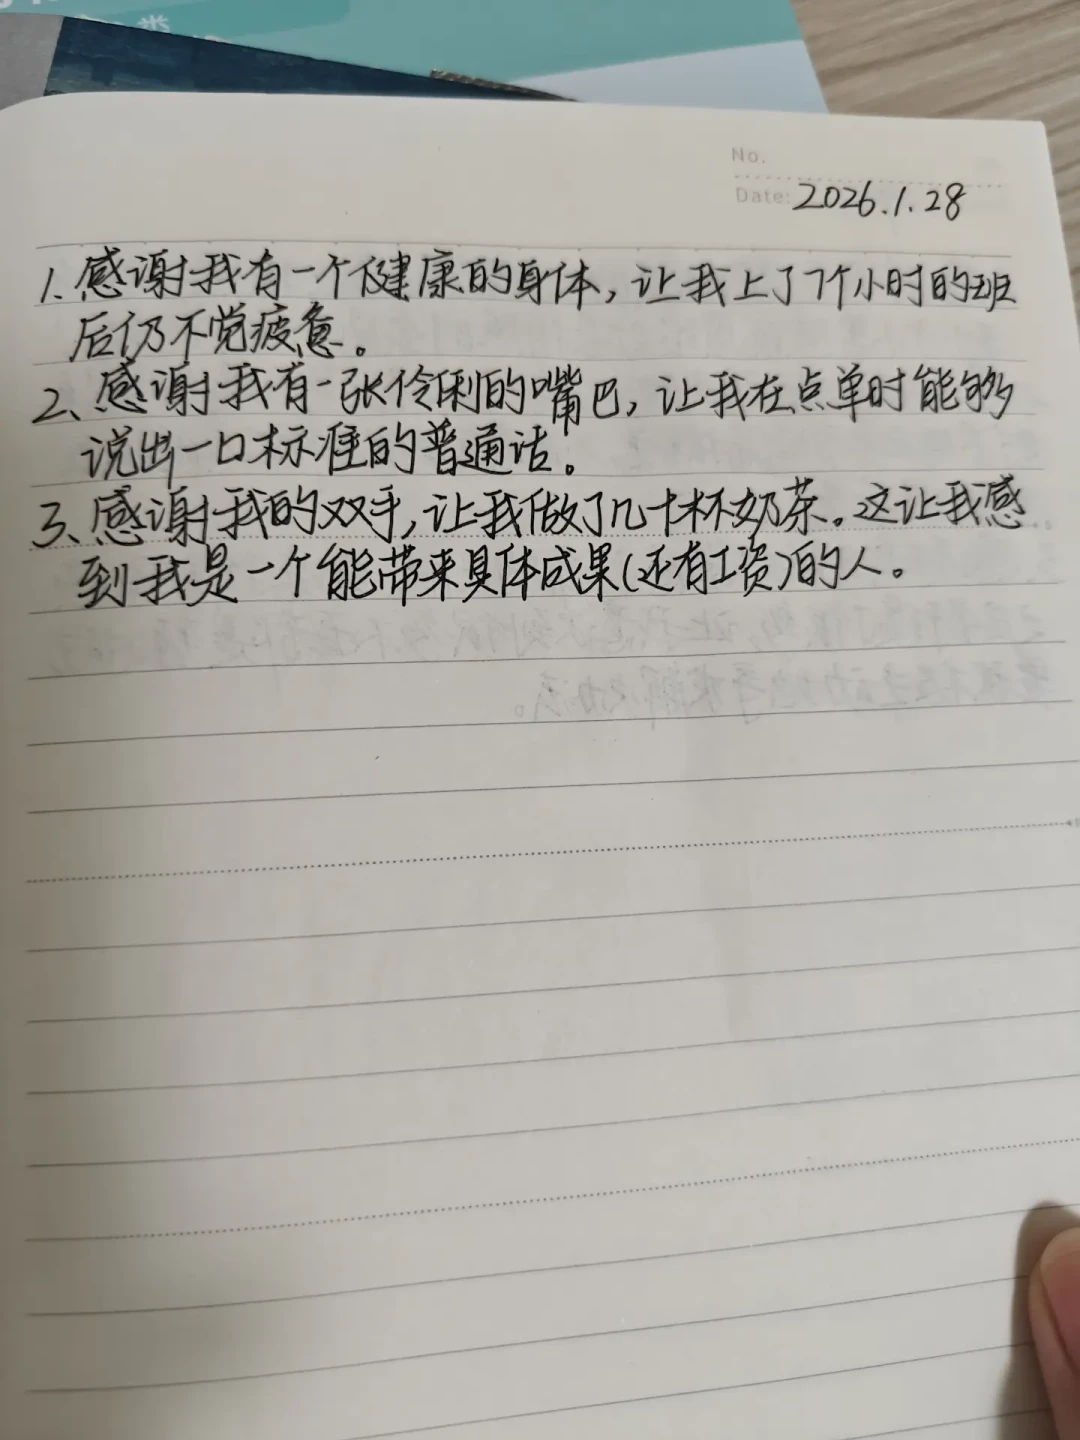 类
No.
Date: 2026.1.28
1. 感谢我有一个健康的身体，让我上了7个小时的班
后仍不觉疲惫。
2、感谢我有一张伶俐的嘴巴，让我在点单时能够
说出一口标准的普通话。
3、感谢我的双手，让我做了几十杯奶茶。这让我感
到我是一个能带来具体成果(还有工资)的人。